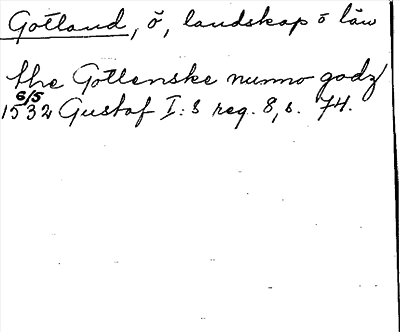 Gotland, ö, landskap o län
the Gotlenske nunno godz
6/5
1532 Gustaf I:s reg. 8, s. 74.